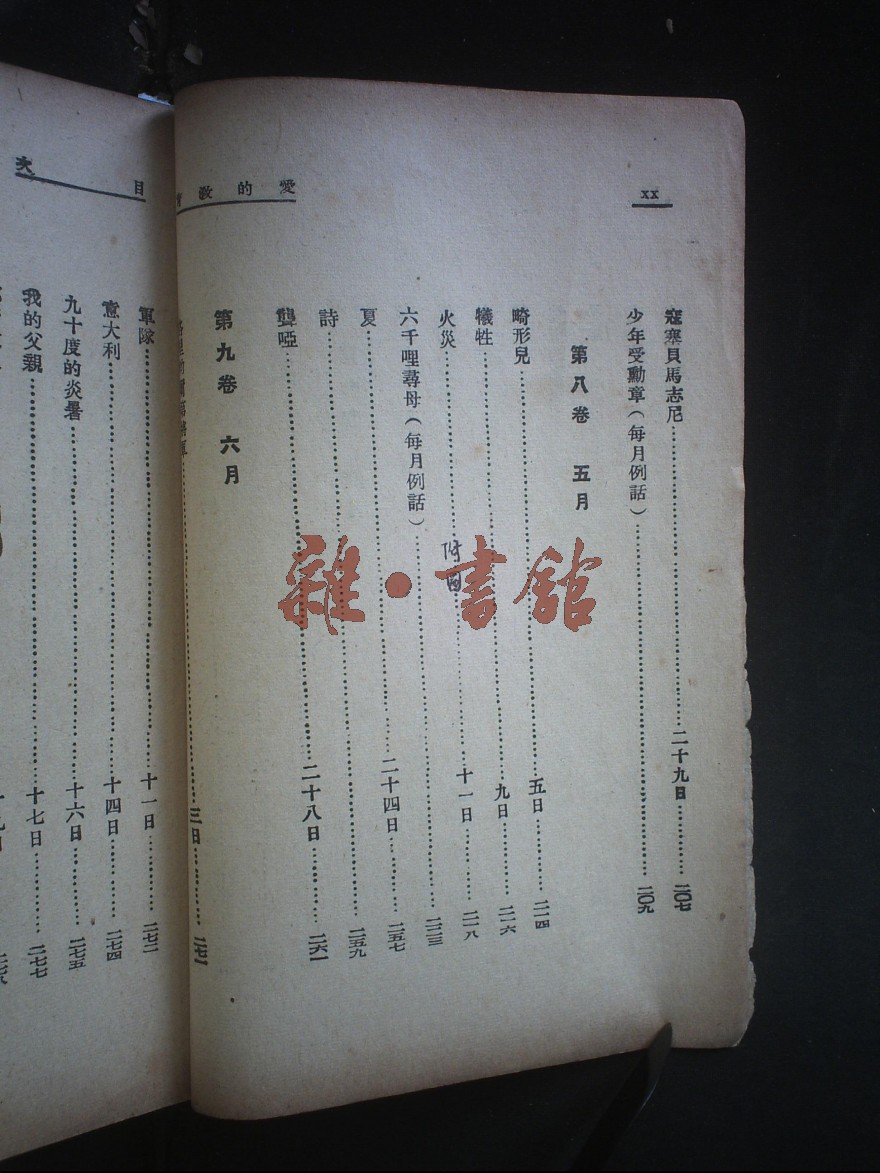 xx
愛的教
寇塞貝馬志尼……二十九日……二〇七
少年受勳章(每月例話)……二〇九
第八卷 五月
畸形兒……五日……二一四
犧牲……九日……二一六
火災……十一日……二一八
附圖
六千哩尋母(每月例話)……二二三
夏……二十四日……二五七
詩……二五九
聾啞……二十八日……二六一
第九卷 六月
將軍……三日……二七一
目次
軍隊……十一日……二七二
意大利……十四日……二七四
九十度的炎暑……十六日……二七五
我的父親……十七日……二七七
雜·書館